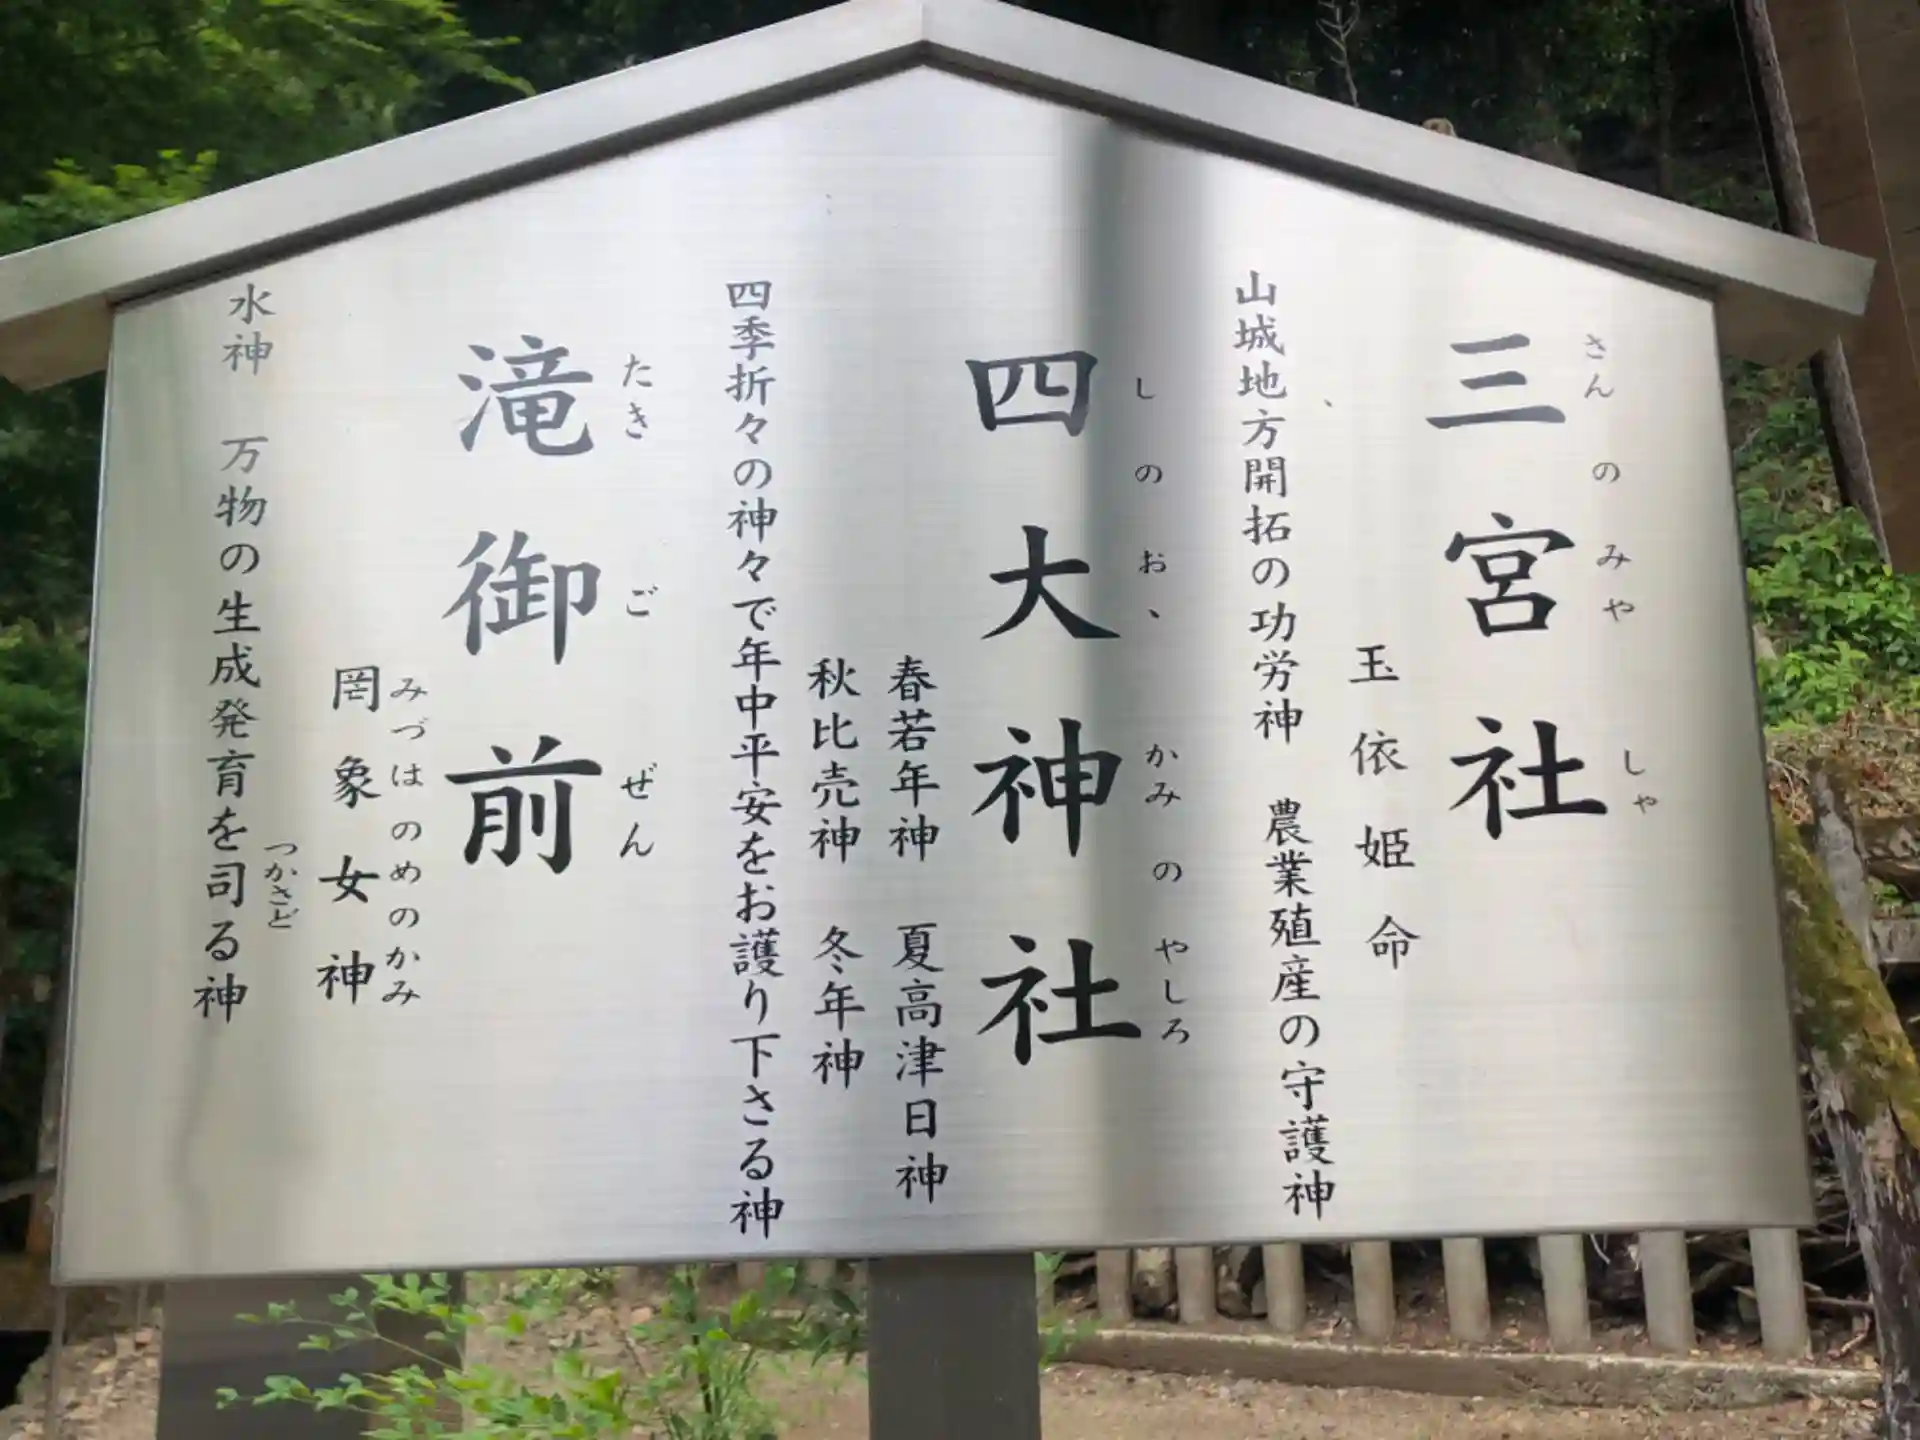 三宮社
さんのみやしゃ
玉依姫命
山城地方開拓の功労神　農業殖産の守護神
四大神社
しのおゝかみのやしろ
春若年神　夏高津日神
秋比売神　冬年神
四季折々の神々で年中平安をお護り下さる神
滝御前
たきごぜん
罔象女神
みづはのめのかみ
水神　万物の生成発育を司る神
つかさど